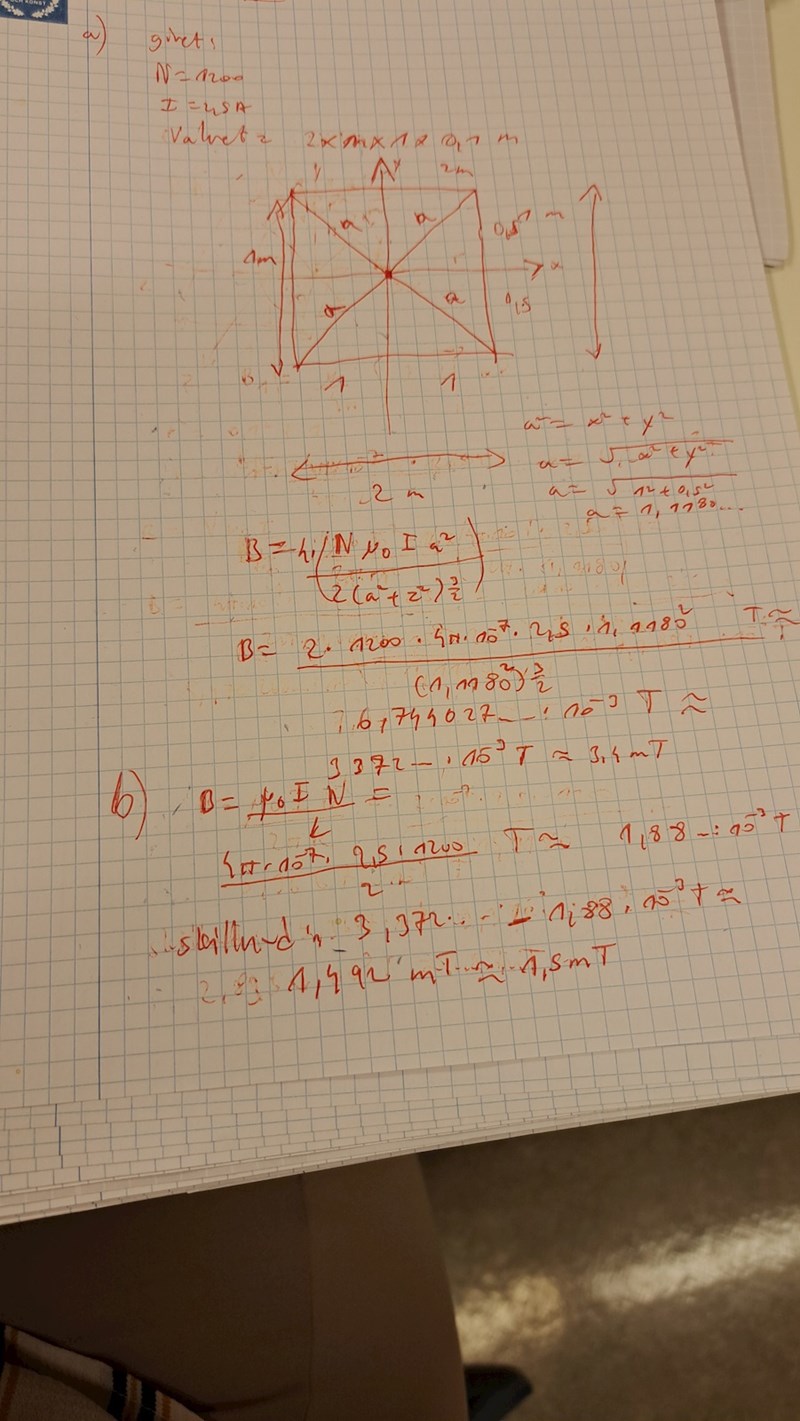 a) givet:
N=1200
I = 2,5A
Valvet = 2 x m x 1 x 0,1 m
y
2m
a
a
0,5
m
1m
x
a
a
0,5
1
1
2 m
a² = x² + y²
a = √x² + y²
a = √1² + 0,5²
a = 1,1180...
B = 4 · (N μ₀ I a² / 2(a² + z²)^3/2)
B = 2 · 1200 · 4π · 10⁻⁷ · 2,5 · 1,1180² / (1,1180²)^3/2 T ≈
6,744027... · 10⁻³ T ≈
3372... · 10⁻³ T ≈ 3,4 mT
b) B = μ₀ I N / L =
4π · 10⁻⁷ · 2,5 · 1200 / 2 T ≈ 1,88... · 10⁻³ T
skillnad: 3,372... - 1,88 · 10⁻³ T ≈
1,492 mT ≈ 1,5 mT